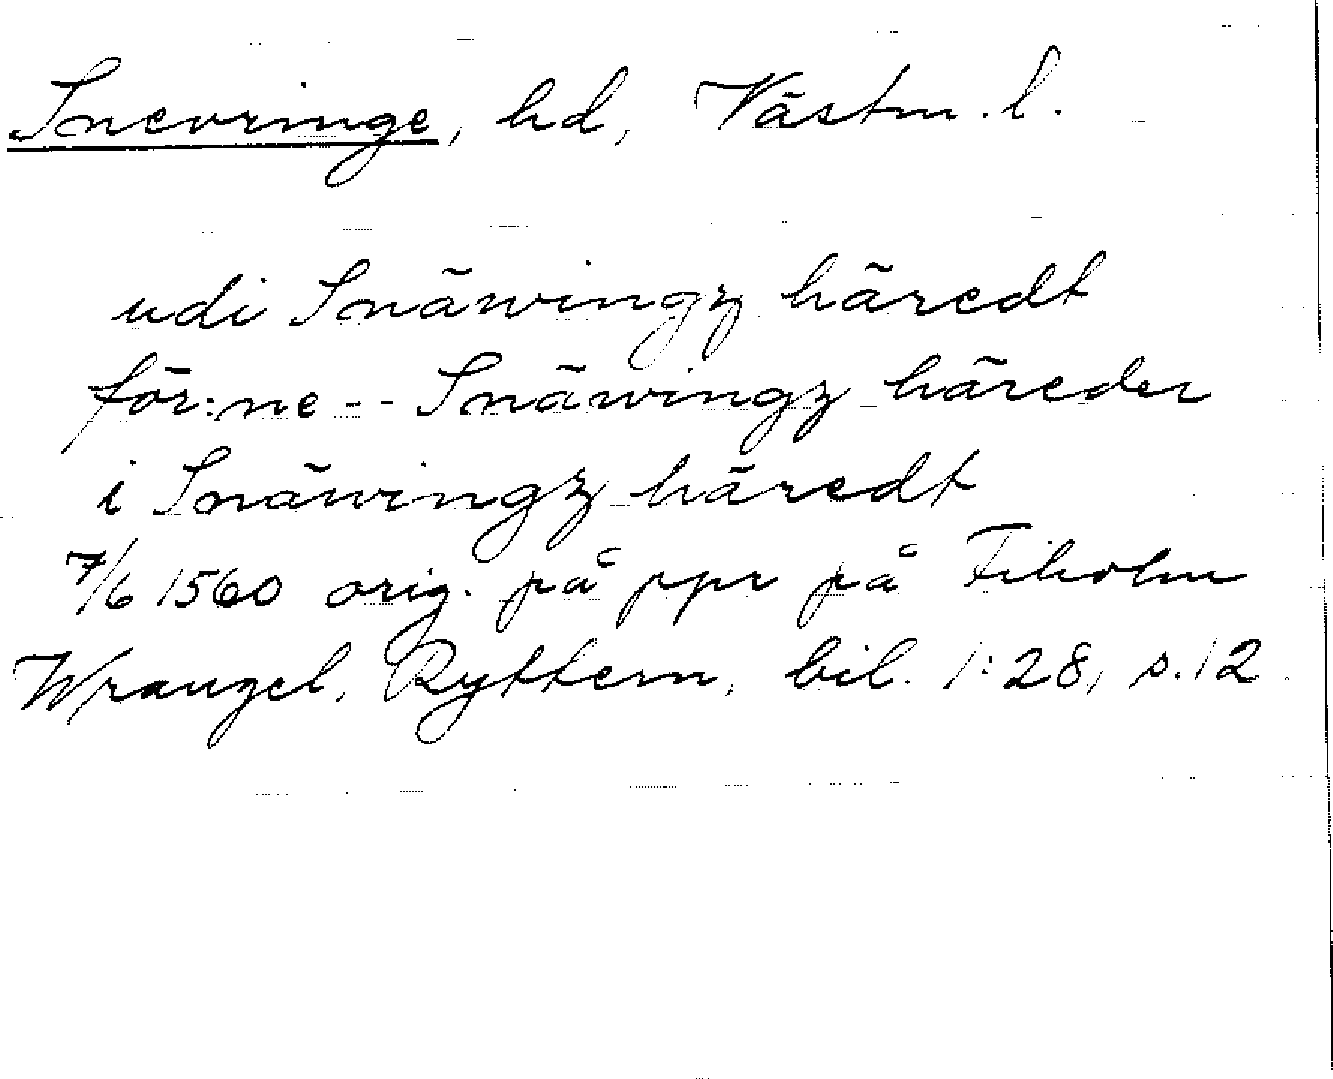 Snevringe, hd, Västm. l.
udi Snäwingz häredt
för:ne -- Snäwingz häreder
i Snäwingz häredt
7/6 1560 orig. på ppr på Fiholm
Wrangel, Ryttern, bil. 1:28, s. 12.